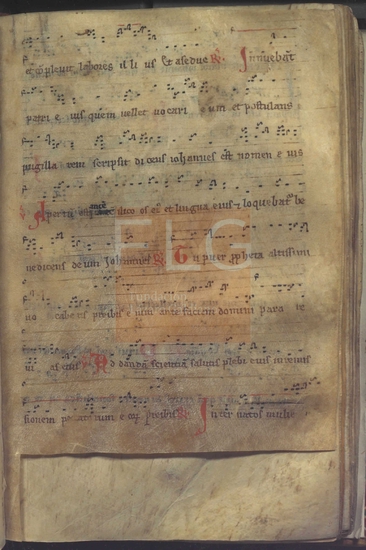 et cōplevit labores il li us Et ase due R Innuebāt
patri e ius quem vellet uocari e um et postulans
pugilla rem scripsit di cens iohannes est nomen e ius
Apertū est ilico os ei et lingua eius loquebat be
nedicens deum Iohannes R Tu puer ppheta altissimi
uo caberis preibis e nim ante faciem domini para re
ui as eius Ad dandā scientiā salutis plebi eius in remis
sionem peccatorum e orū preibis Inter natos mulie
FLG